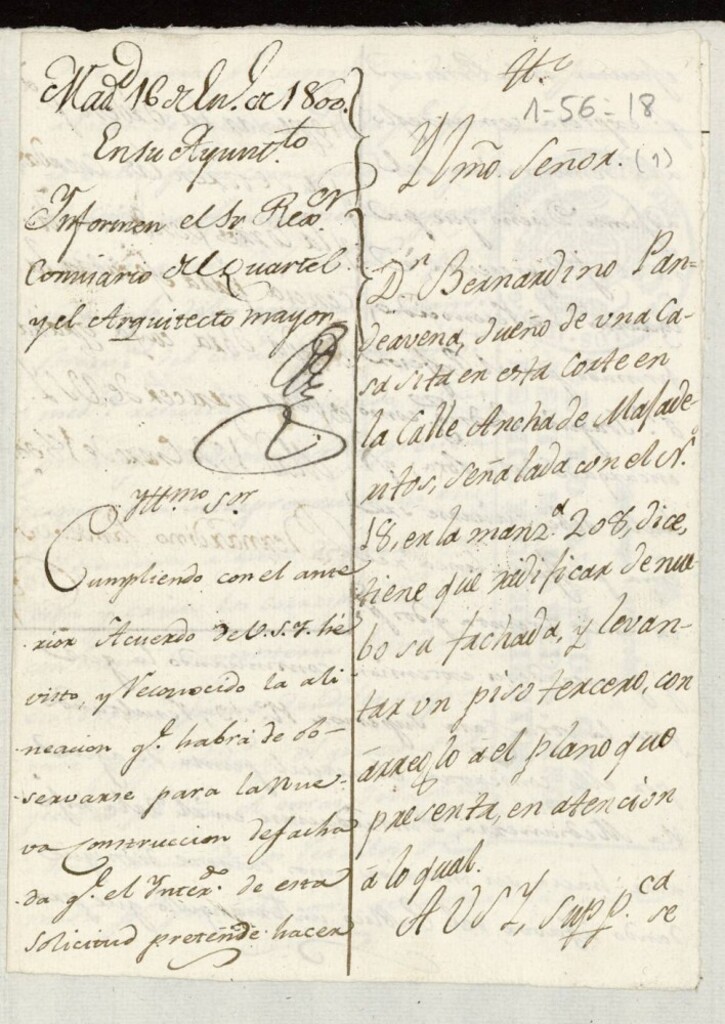 Mad.d 16 de En.o de 1800.
En su Ayunt.to
Informen el Sr Rex.or
Comisario del Quartel
y el Arquitecto mayor
Yttmo Sor
Cumpliendo con el ante
rior Acuerdo de V.S.Y. hé
visto, y reconocido la ali
neacion q.e habrá de ob-
servarse para la Nue-
va Construccion de facha
da q.e el Inter.do de esta
solicitud pretende hacer
1-56-18
Yllmô. Señor. (1)
D.n Bernardino Pan-
deavena, dueño de vna Ca-
sa sita en esta Corte en
la Calle Ancha de Malade-
ritos, señalada con el N.o
18, en la manz.a 208, dice,
tiene que redificar de nue
bo su fachada, y levan-
tar vn piso tercero, con
árreglo a el plano que
presenta, en atencion
á lo qual.
A V S Y, supp.ca se